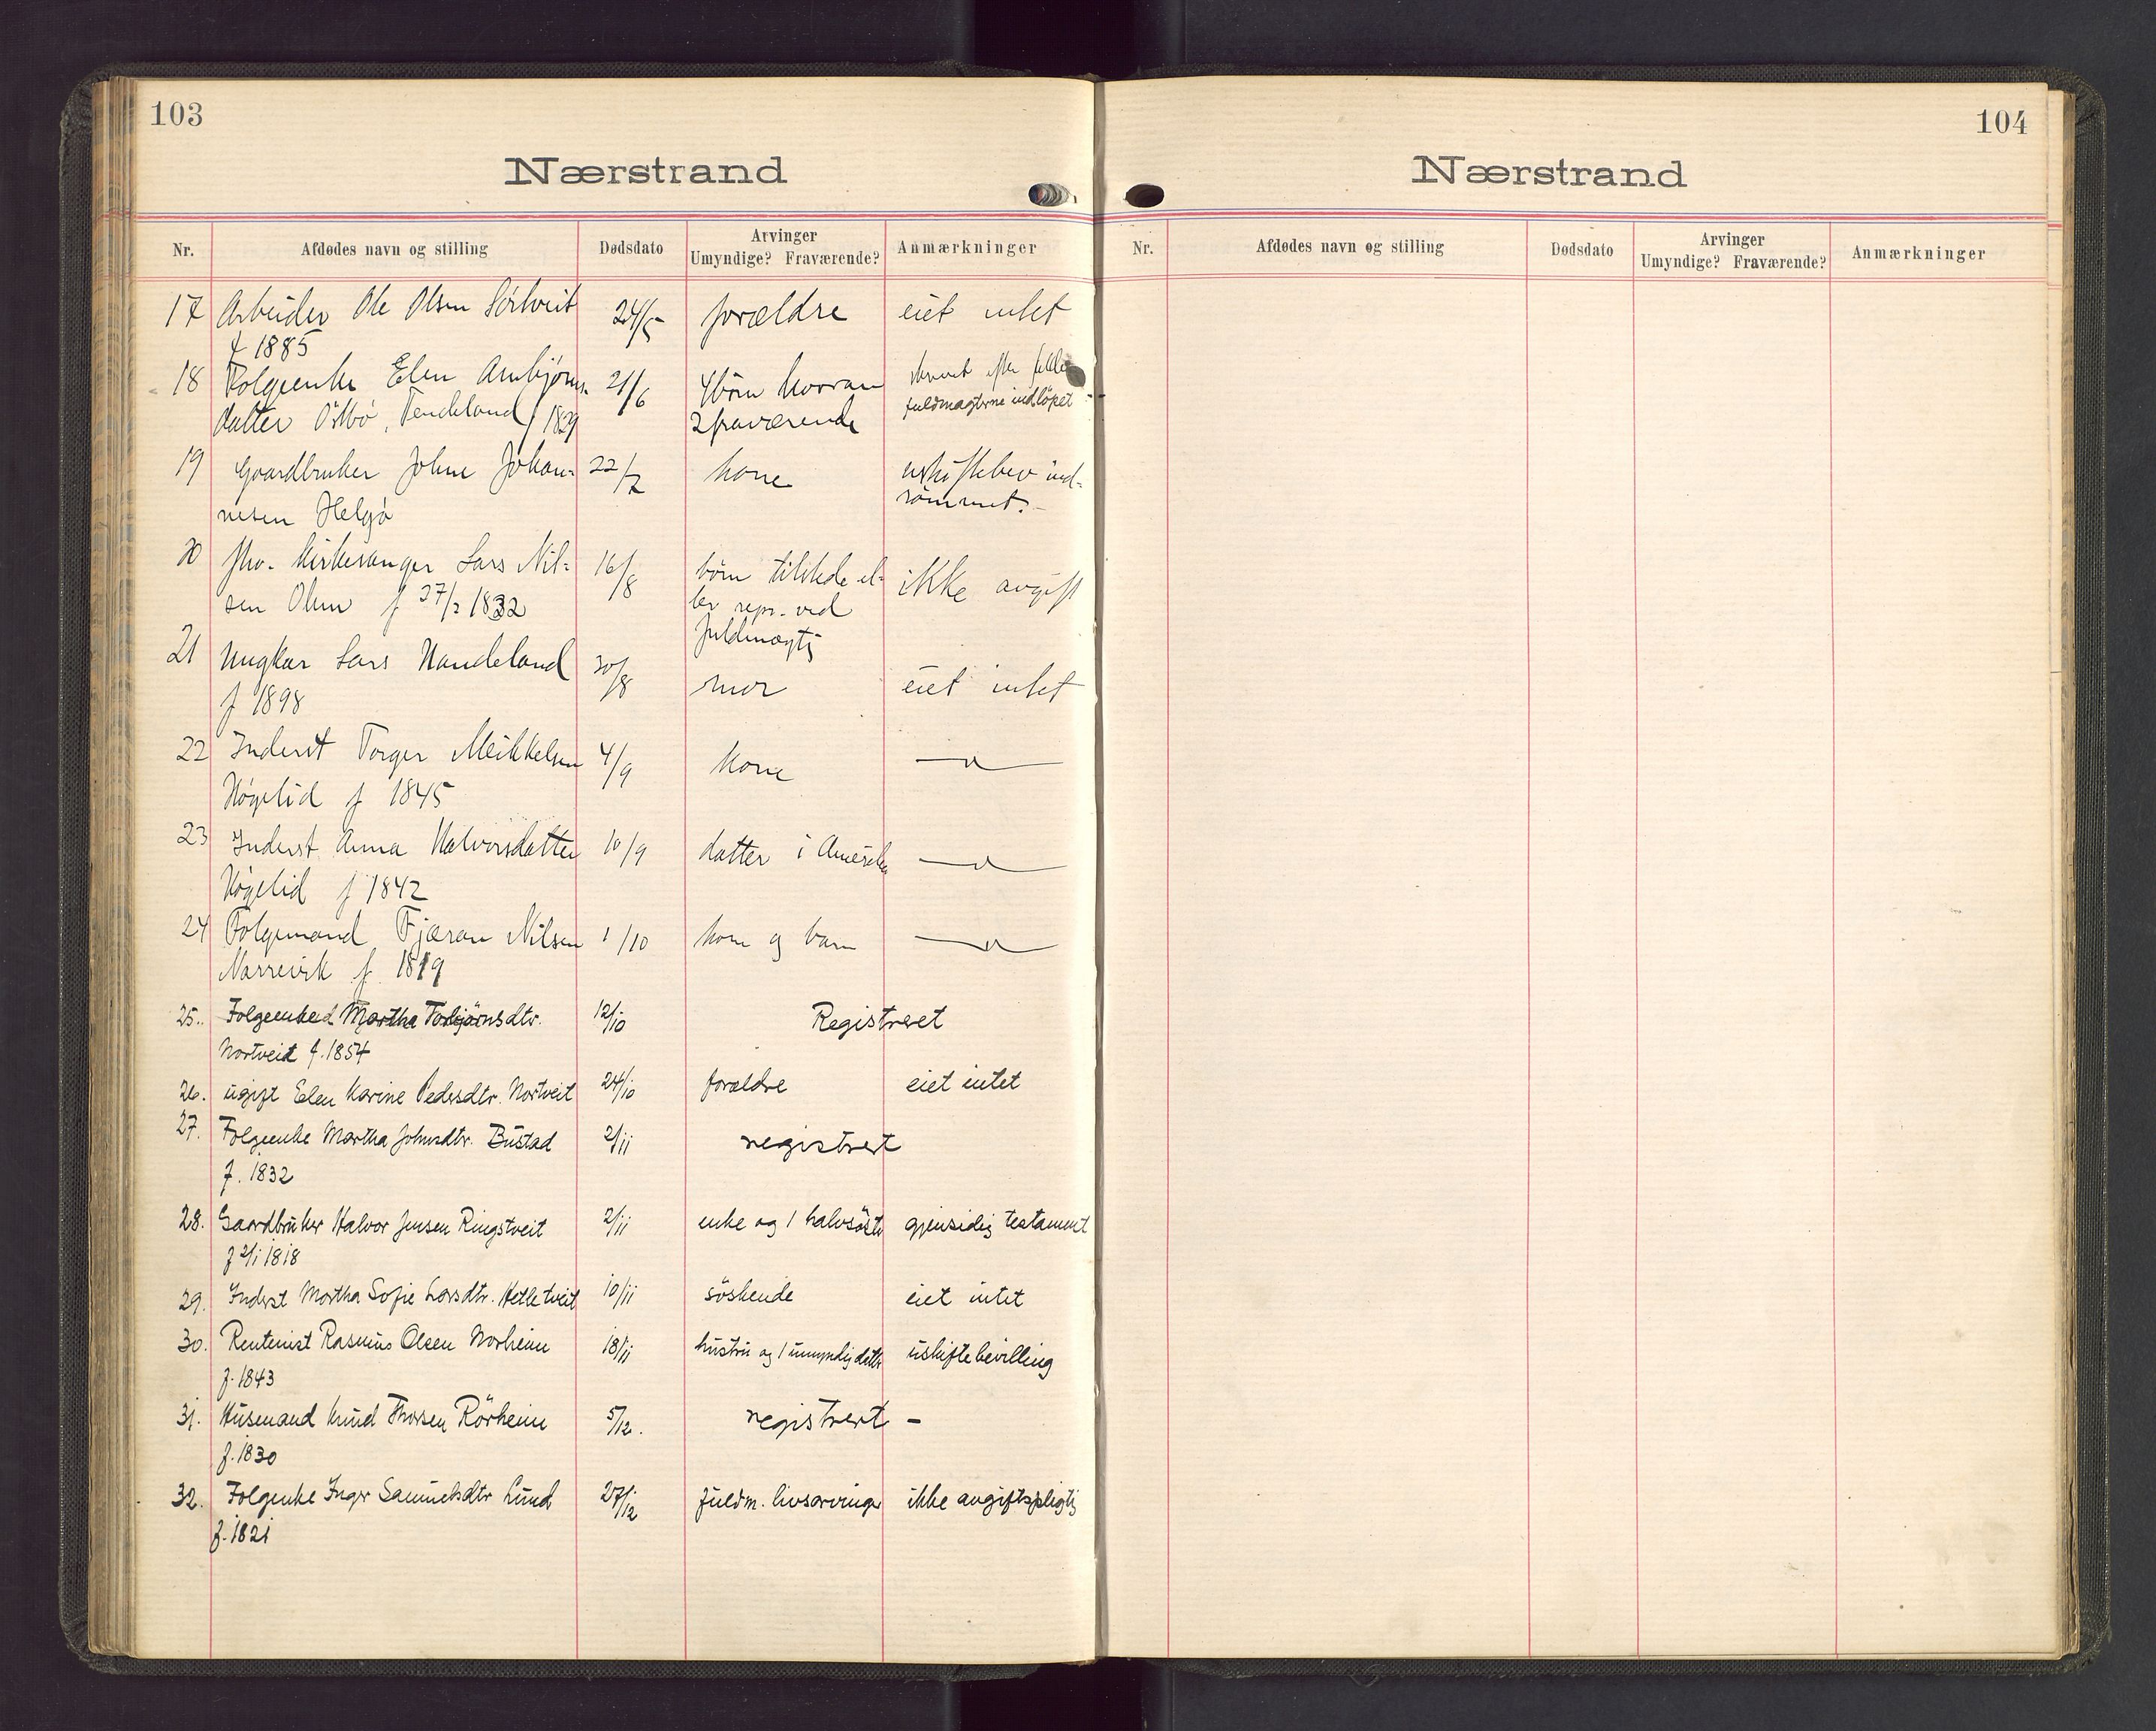 103
Nærstrand
Nr. Afdødes navn og stilling Dødsdato Arvinger Umyndige? Fraværende? Anmærkninger
17 Arbeider Ole Olsen Sörtveit 24/5 forældre eiet intet
f 1885
18 Folgeenke Elen Ambjörns- 21/6 4 börn hvorav
datter Östbö, Tendeland f 1829 2 fraværende fuldmagterne indlöpet
19 Gaardbruker John Johan- 22/7 kone uskiftebev ind-
nesen Helgö römmet.-
20 fhv. Kirkesanger Lars Nil- 16/8 börn tilstede el- ikke avgift
sen Ohm f 27/2 1832 ler repr. ved
fuldmagtig
21 Ungkar Lars Handeland 30/8 mor eiet intet
f 1898
22 Inderst Torger Meikkelsen 4/9 kone —"—
Högelid f 1845
23 Inderst Anna Halvorsdatter 10/9 datter i Amerika —"—
Högelid f 1842
24 Folgemand Fjæran Nilsen 1/10 kone og barn —"—
Narrevik f. 1819
25. Folgeenke Martha Torbjörnsdtr. 12/10 Registreret
Nortveit f. 1854
26. ugift Elen Karine Pedersdtr. Nortveit 24/10 forældre eiet intet
27. Folgeenke Martha Johnsdtr. Bustad 2/11 registrert
f. 1832
28. Gaardbruker Halvor Jensen Ringstveit 2/11 enke og 1 halvsöster gjensidig testament
f 2/1 1818
29. Inderst Martha Sofie Larsdtr. Hetletveit 10/11 söskende eiet intet
30. Rentenist Rasmus Olsen Norheim 18/11 hustru og 1 umyndig datter uskiftebevilling
f. 1843
31. Husmand Knud Thorsen Rörheim 5/12. registrert -
f. 1830
32. Folgenke Inger Samuelsdtr Lund 27/12 fuldm. livsarvinger ikke avgiftspligtig
f. 1821
104
Nærstrand
Nr. Afdødes navn og stilling Dødsdato Arvinger Umyndige? Fraværende? Anmærkninger